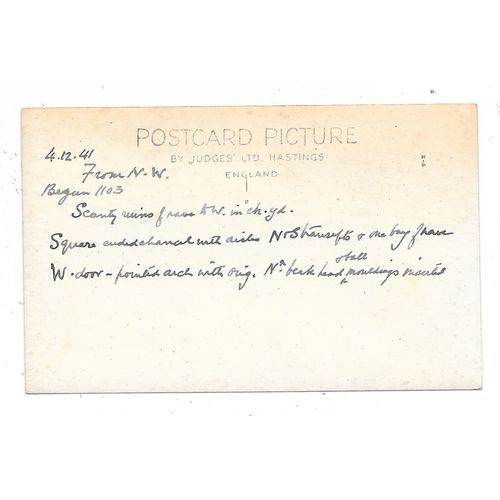 POSTCARD PICTURE
BY JUDGES' LTD. HASTINGS
ENGLAND
4.12.41
From N.W.
Began 1103
Scanty ruins of nave to W. in ch. yd.
Square ended chancel with aisles N & S transepts & one bay of nave
W. door - pointed arch with orig. Nn beak head & ball mouldings inserted